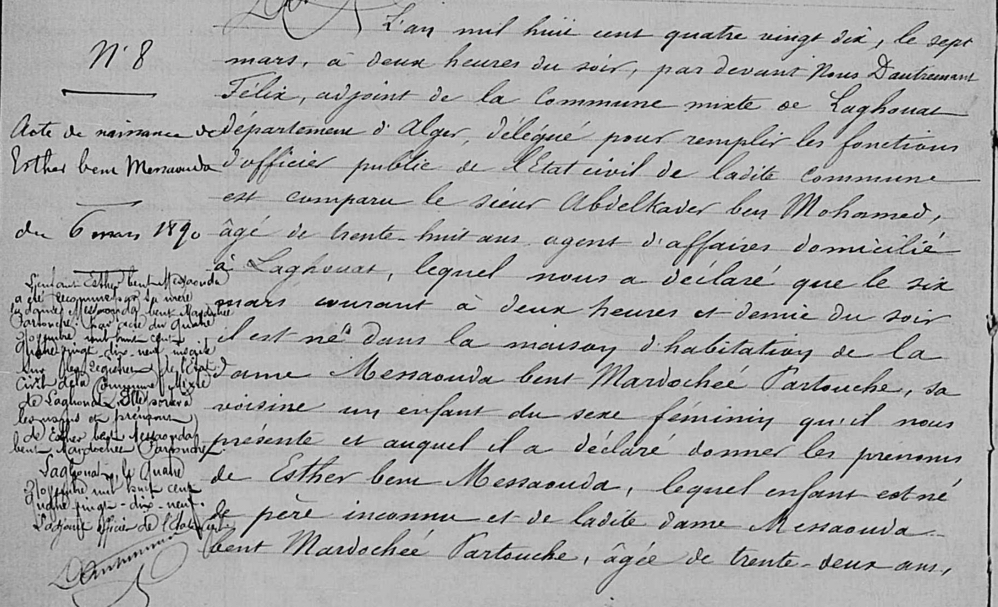 N° 8
Acte de naissance de
Esther bent Messaouda
du 6 mars 1890
L'enfant Esther bent Messaouda
a été reconnue par sa mère
la dame Messaouda bent Mardochée
Partouche par acte du quatre
Novembre mil huit cent
quatre vingt-dix-neuf inscrit
sur les registres de l'Etat
civil de la Commune Mixte
de Laghouat. Elle portera
les noms et prénoms
de Esther bent Messaouda
bent Mardochée Partouche.
Laghouat, le quatre
Novembre mil huit cent
quatre vingt-dix-neuf.
L'adjoint officier de l'état civil
L'an mil huit cent quatre vingt dix, le sept
mars, à deux heures du soir, par devant Nous Dautremant
Félix, adjoint de la Commune mixte de Laghouat
département d'Alger, délégué pour remplir les fonctions
d'officier public de l'Etat civil de ladite Commune
est comparu le sieur Abdelkader ben Mohamed,
âgé de trente-huit ans, agent d'affaires domicilié
à Laghouat, lequel nous a déclaré que le six
mars courant à deux heures et demie du soir
il est né dans la maison d'habitation de la
dame Messaouda bent Mardochée Partouche, sa
voisine un enfant du sexe féminin qu'il nous
présente et auquel il a déclaré donner les prénoms
de Esther bent Messaouda, lequel enfant est né
de père inconnu et de ladite dame Messaouda
bent Mardochée Partouche, âgée de trente-deux ans,